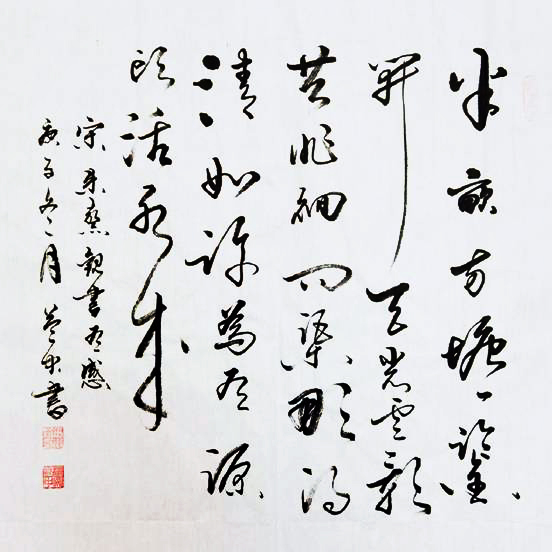 半畝方塘一鑒
開天光雲影
共徘徊問渠那得
清如許為有源
頭活水來
宋朱熹觀書有感
庚子冬月書